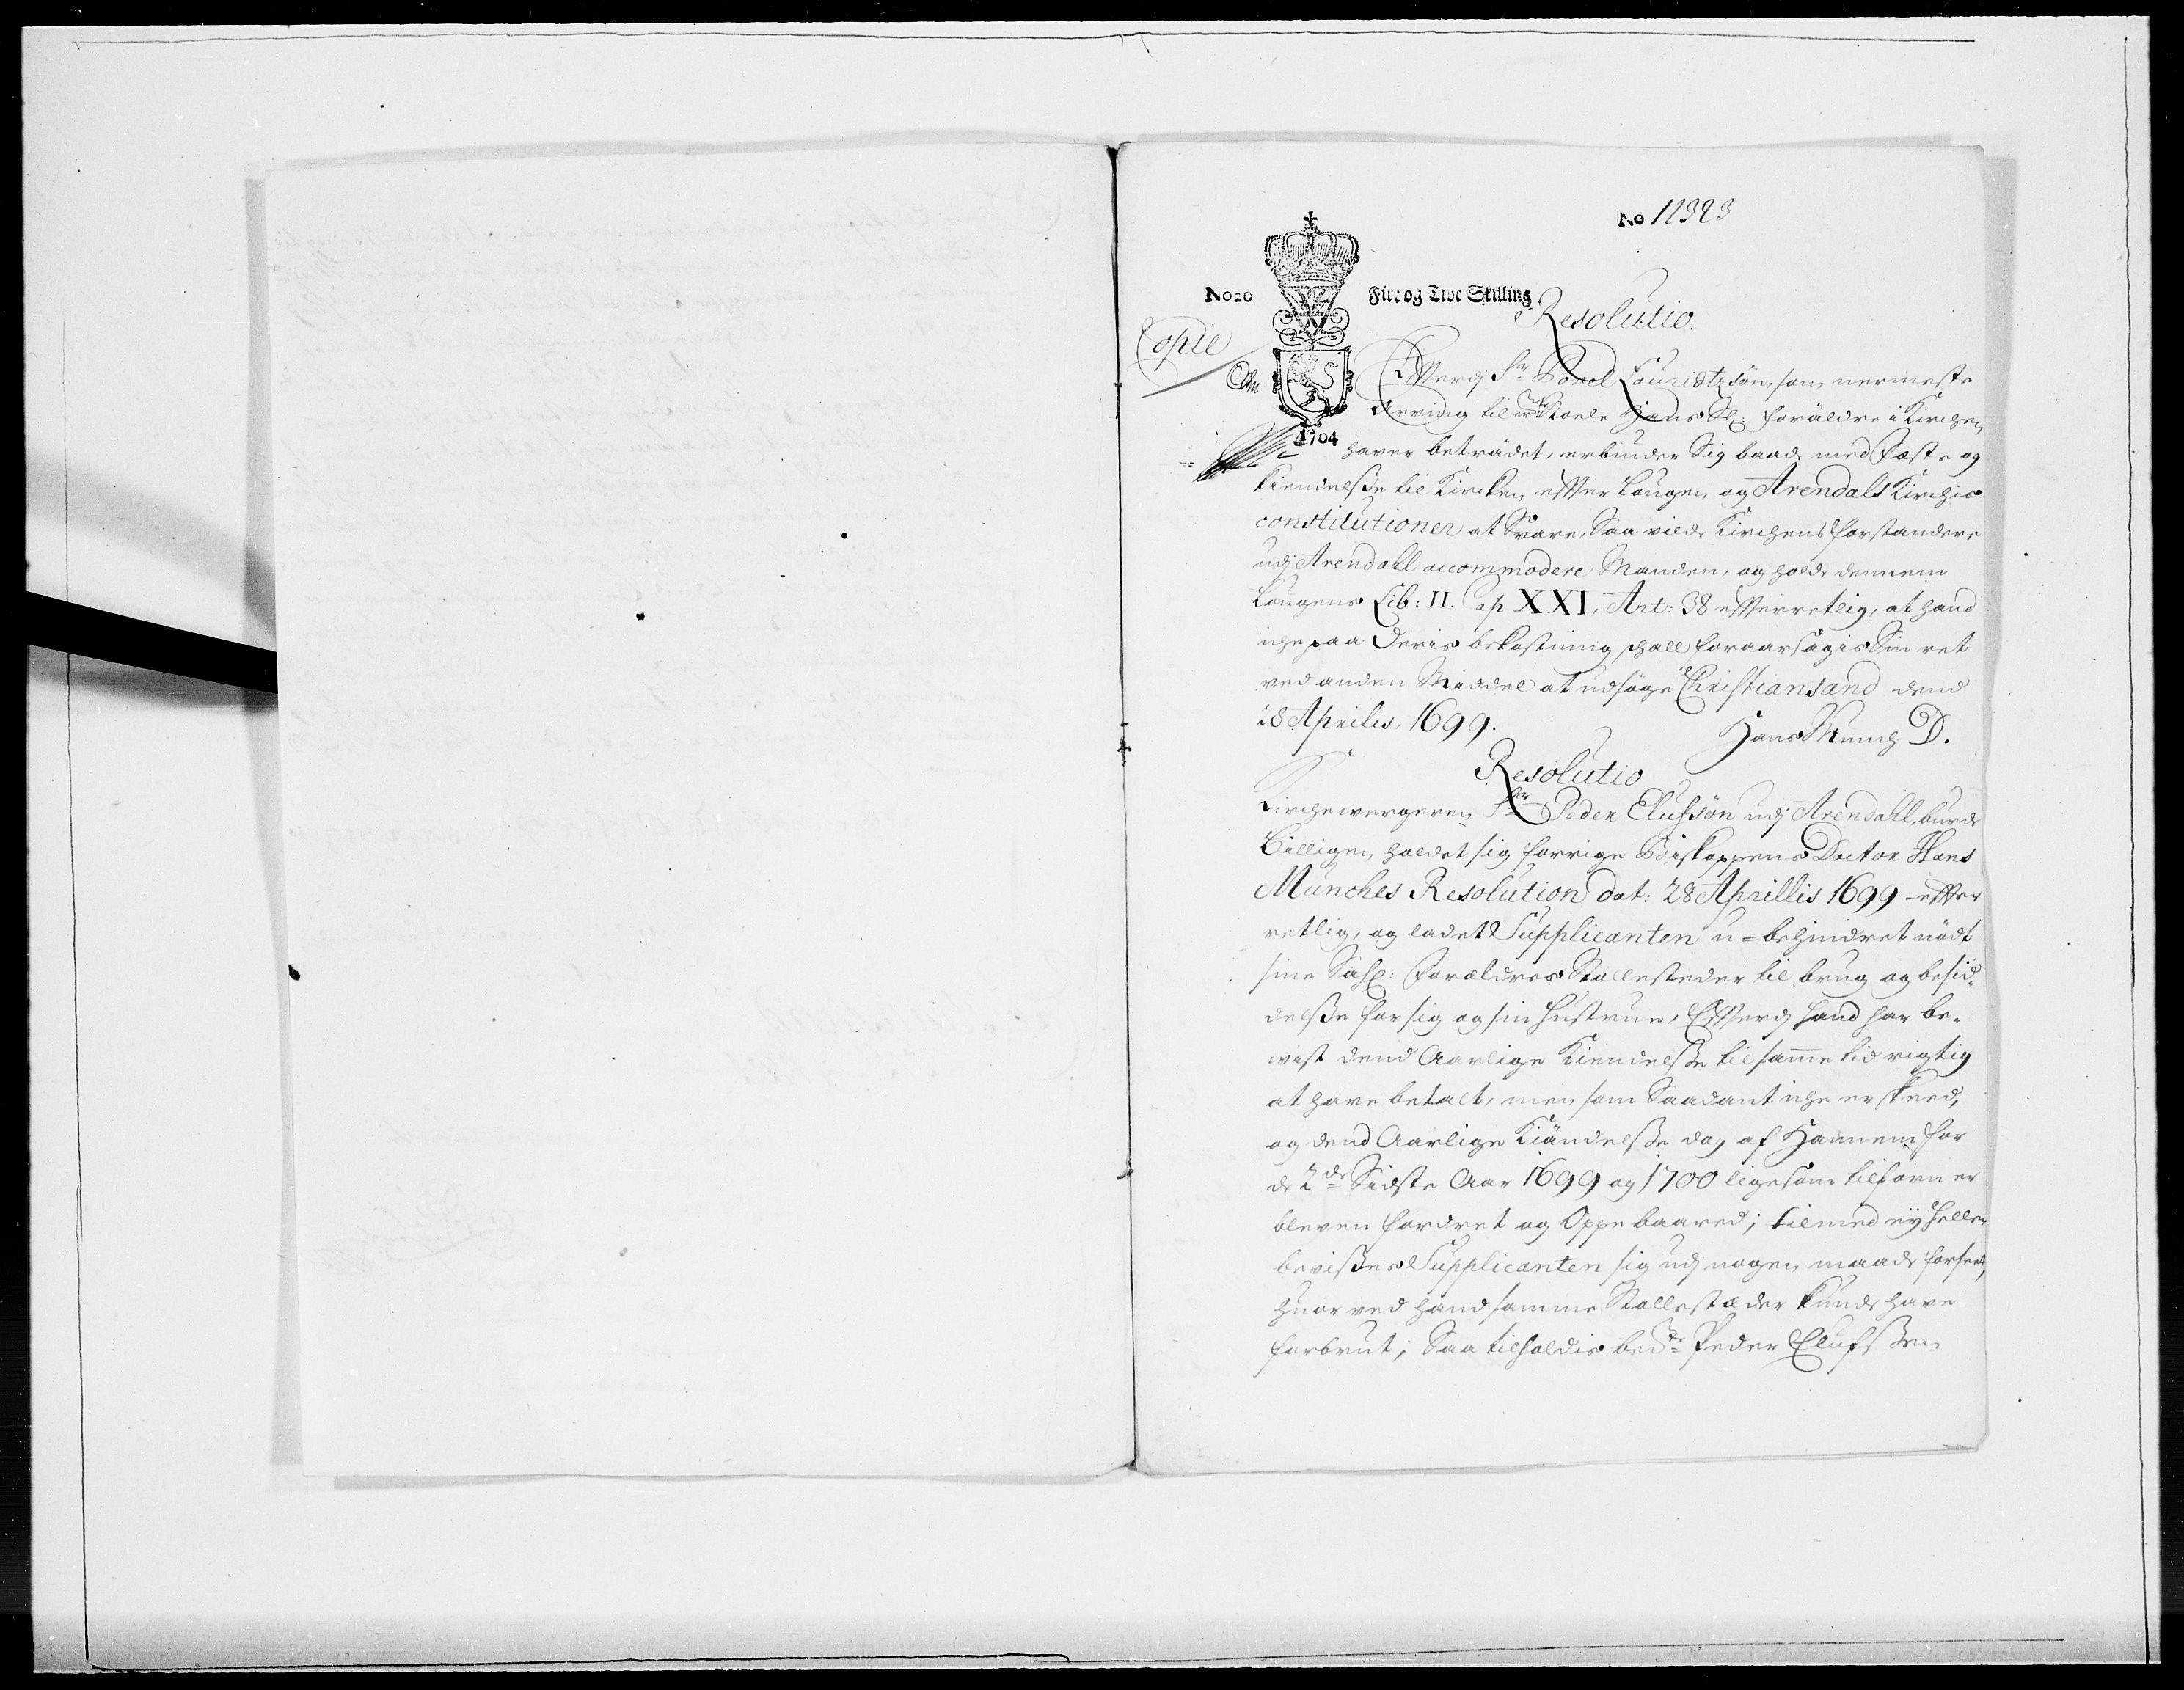 No 12323
No 20
Fire og Tive Skilling
Resolutio.
Copie
1704
Efterdj Sr Povel Lauridtzsøn, som nermeste
Arving til Stoele Hans Sl: forældre i Kirchen
haver betrædet, erbiuder Sig baade med Fæste og
kiendelsse til Kirken efter Lougen og Arendals Kirchis
constitutioner at Svare, Saa vilde Kirchens forstandere
udj Arendall accommodere Manden, og holde dennem
Lougens Lib: II. Cap XXI. Art: 38 efterretlig, at hand
iche paa Deris bekostning schall foraarsagis Sin ret
ved anden Middel at udsøge Christiansand dend
28 Aprilis. 1699.
Hans Munch D.
Resolutio
Kirchewergeren Sr Peder Elufsøn udj Arendahl, burde
billigen holdet sig forrige Biskoppens Doctor Hans
Munches Resolution dat: 28 Aprillis 1699 efter
retlig, og ladet Supplicanten u-behindret nødt
sine Sahl: Forældres Stollesteder til brug og besid-
delsse for sig og sin hustrue, Efterdj hand har be-
vist dend Aarlige Kiendelsse til samme tid rigtig
at have betalt, men som Saadant iche er skeed,
og dend Aarlige Kiændelsse dog af Hannem for
de 2de Sidste Aar 1699 og 1700 ligesom tilforn er
bleven fordret og Oppebaared; tilmed ey heller
bevisses Supplicanten sig udj nogen maade forseet,
huorved hand samme Stollestæder kunde have
forbrut; Saa tilholdis bete Peder Elufssen